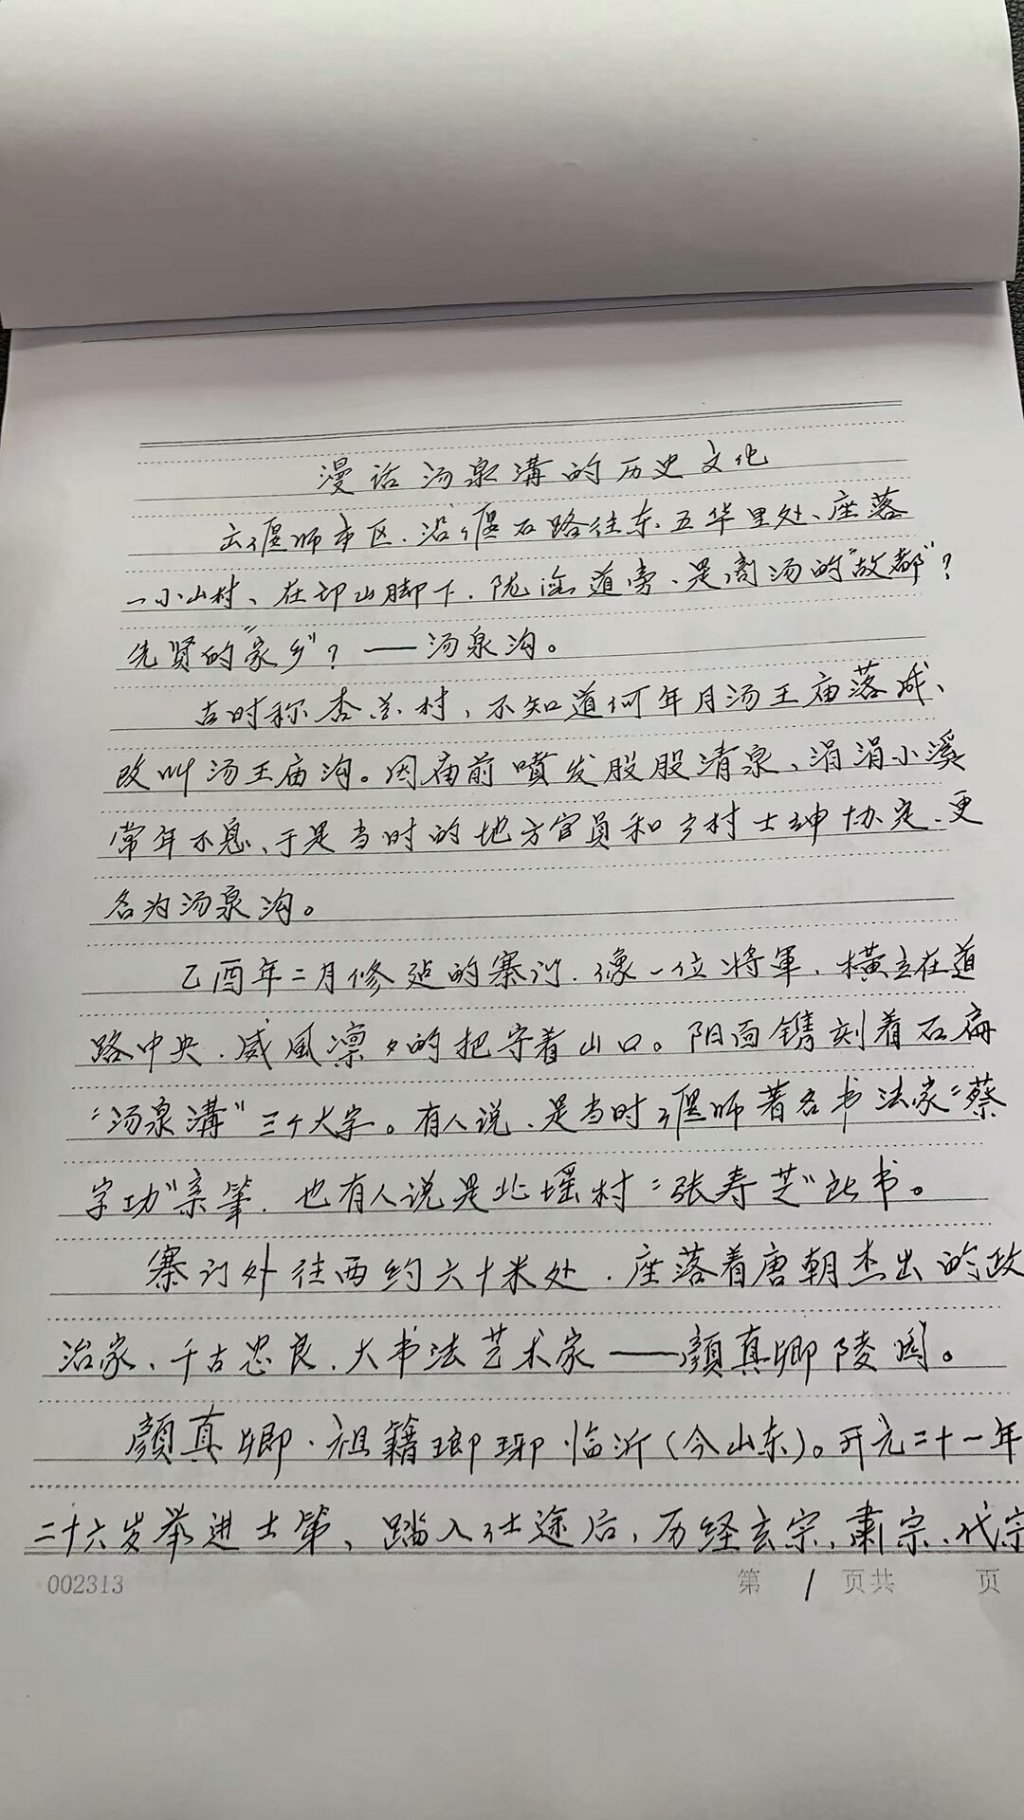 漫话汤泉溝的历史文化
去偃师市区.沿偃石路往东.五华里处、座落
一小山村、在邙山脚下.陇海道旁.是商汤的"故都"?
先贤的"家乡"?——汤泉沟。
古时称杏花村,不知道何年月汤王庙落成、
改叫汤王庙沟。因庙前喷发股股清泉、涓涓小溪
常年不息、于是当时的地方官员和乡村士绅协定.更
名为汤泉沟。
乙酉年二月修建的寨门.像一位将軍.横立在道
路中央.威風凛々的把守着山口。阳面镌刻着石扁
"汤泉溝"三个大字。有人说.是当时偃师著名书法家"蔡
字功"亲筆.也有人说是北瑶村"张寿芝"所书。
寨门外往西约六十米处.座落着唐朝杰出的政
治家、千古忠良.大书法艺术家——顔真卿陵园。
顔真卿.祖籍瑯琊临沂(今山东)。开元二十一年
二十六岁举进士第、踏入仕途后,历经玄宗,肅宗.代宗
002313 第1页共 页